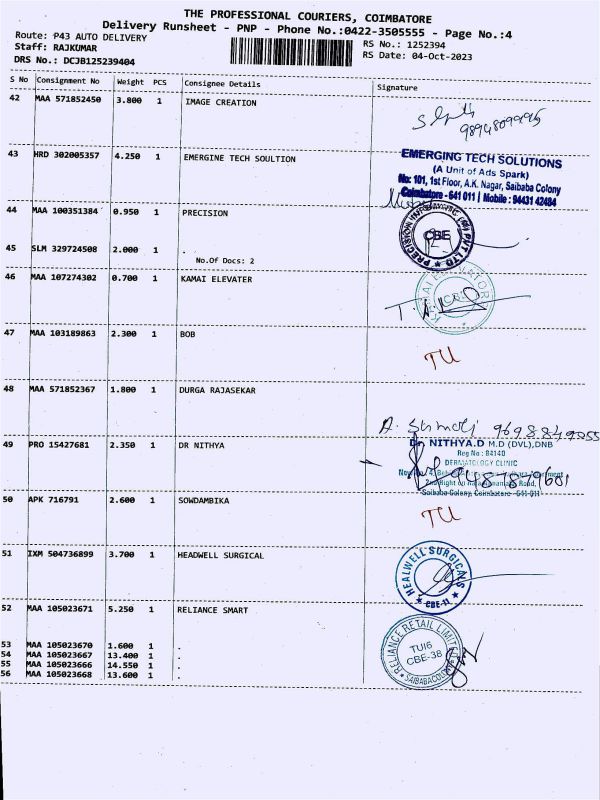 THE PROFESSIONAL COURIERS, COIMBATORE
Delivery Runsheet - PNP - Phone No.:0422-3505555 - Page No.:4
Route: P43 AUTO DELIVERY RS No.: 1252394
Staff: RAJKUMAR RS Date: 04-Oct-2023
DRS No.: DCJB125239404
S No Consignment No Weight PCS Consignee Details Signature
42 MAA 571852450 3.800 1 IMAGE CREATION
9894809995
43 HRD 302005357 4.250 1 EMERGINE TECH SOULTION
EMERGING TECH SOLUTIONS
(A Unit of Ads Spark)
No: 101, 1st Floor, A.K. Nagar, Saibaba Colony
Coimbatore - 641 011 | Mobile : 94431 42484
44 MAA 100351384 0.950 1 PRECISION
CBE
45 SLM 329724508 2.000 1 .
No.Of Docs: 2
46 MAA 107274302 0.700 1 KAMAI ELEVATER
47 MAA 103189863 2.300 1 BOB
TU
48 MAA 571852367 1.800 1 DURGA RAJASEKAR
49 PRO 15427681 2.350 1 DR NITHYA
Dr. NITHYA.D M.D (DVL),DNB
Reg No : 84140
DERMATOLOGY CLINIC
Saibaba Colony, Coimbatore - 641 011
50 APK 716791 2.600 1 SOWDAMBIKA
TU
51 IXM 504736899 3.700 1 HEADWELL SURGICAL
HEALWELL SURGICALS
CBE-11
52 MAA 105023671 5.250 1 RELIANCE SMART
RELIANCE RETAIL LIMITED
TUI6
CBE-38
SAIBABACOLONY
53 MAA 105023670 1.600 1 .
54 MAA 105023667 13.400 1 .
55 MAA 105023666 14.550 1 .
56 MAA 105023668 13.600 1 .